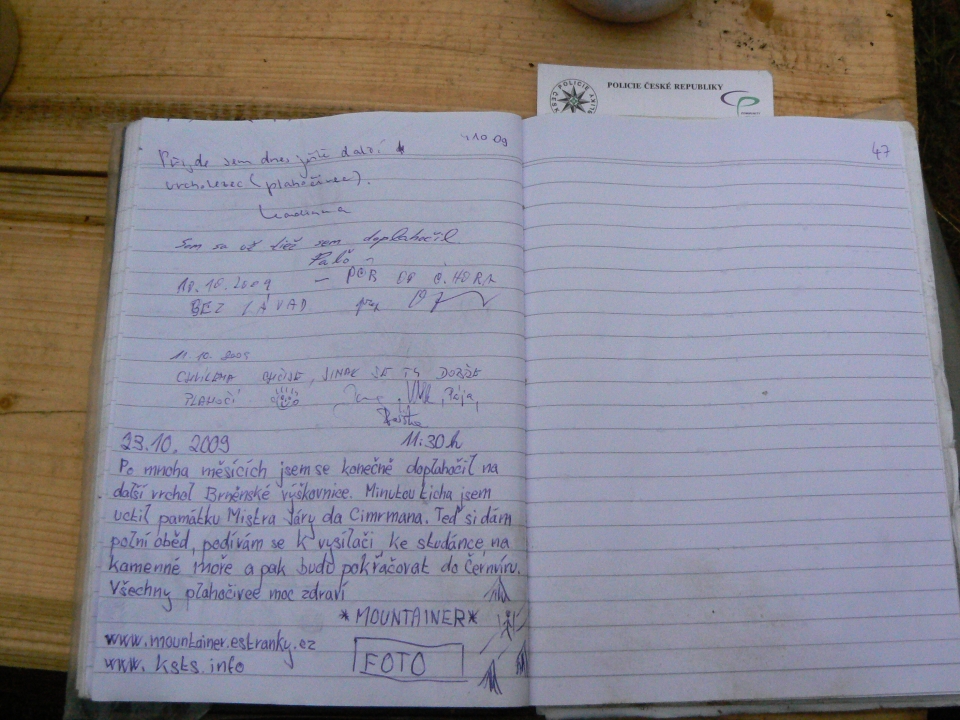 POLICIE ČESKÉ REPUBLIKY
47
Přijde sem dnes ještě další
vrcholevec (plahočivec).
Som sa až tiež sem doplahočil
Palo
10.10.2009 – PČR OP Č. HORA
BEZ ZÁVAD
11.10.2009
CHČIJE, JINAK SE TO DOBŘE
PLAHOČÍ
23.10.2009 11:30 h
Po mnoha měsících jsem se konečně doplahočil na
další vrchol Brněnské výškovnice. Minutou ticha jsem
uctil památku Mistra Járy da Cimrmana. Teď si dám
polní oběd, podívám se k vysílači ke studánce, na
kamenné moře a pak budu pokračovat do Černvíru.
Všechny plahočivce moc zdraví
*MOUNTAINER*
www.mountainer.estranky.cz
www.ksts.info
FOTO